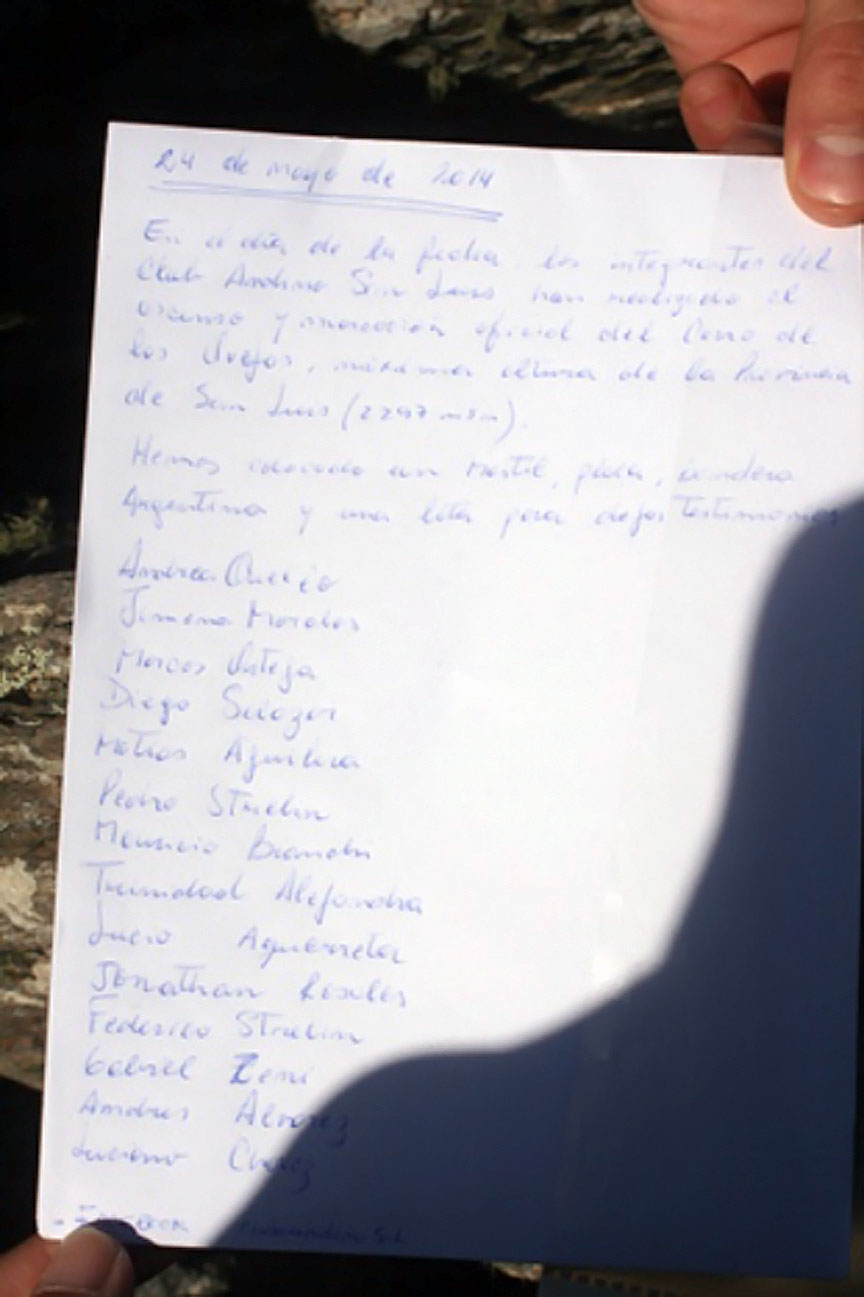 24 de mayo de 2014
En el día de la fecha, los integrantes del
Club Andino San Luis han realizado el
ascenso y marcación oficial del Cerro de
los Viejos, máxima altura de la Provincia
de San Luis (2297 msnm).
Hemos colocado un mastil, placa, bandera
Argentina y una lata para dejar testimonios
Andrea
Jimena Morales
Marcos Ortega
Diego Salazar
Matias Aguilera
Pedro Strelin
Mauricio Bianchi
Trinidad Alejandra
Lucio Aguerreta
Jonathan Rosales
Federico Strelin
Gabriel Zeni
Andres Alvarez
Luciano Chavez